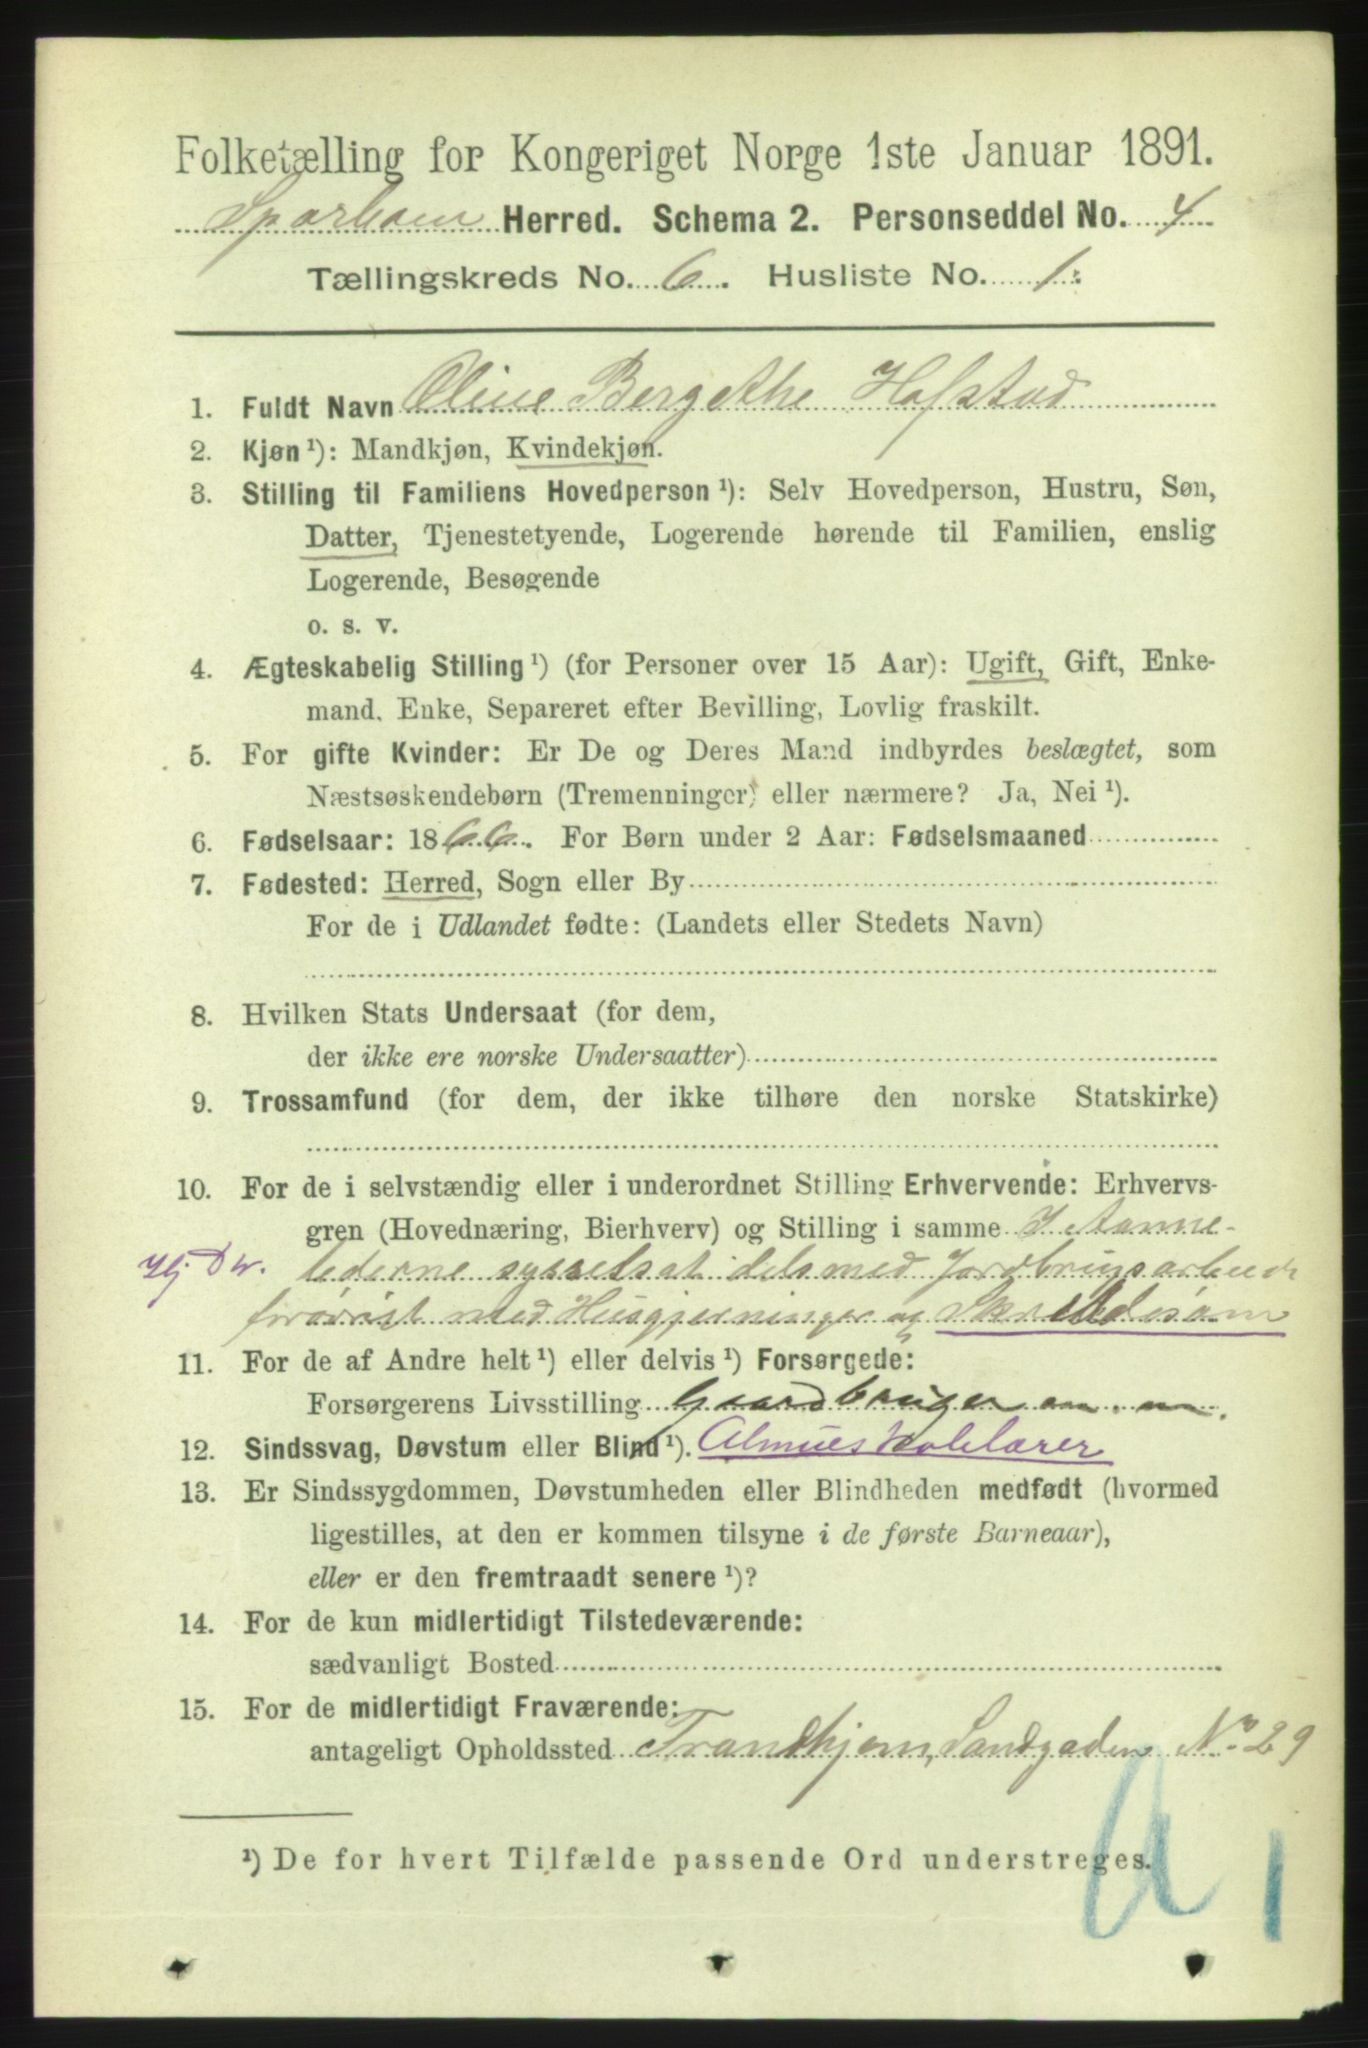 Folketælling for Kongeriget Norge 1ste Januar 1891.
Sparboen Herred. Schema 2. Personseddel No. 4
Tællingskreds No. 6. Husliste No. 1.
1. Fuldt Navn Oline Bergethe Hofstad
2. Kjøn ¹): Mandkjøn, Kvindekjøn.
3. Stilling til Familiens Hovedperson ¹): Selv Hovedperson, Hustru, Søn,
Datter, Tjenestetyende, Logerende hørende til Familien, enslig
Logerende, Besøgende
o. s. v.
4. Ægteskabelig Stilling ¹) (for Personer over 15 Aar): Ugift, Gift, Enke-
mand. Enke, Separeret efter Bevilling, Lovlig fraskilt.
5. For gifte Kvinder: Er De og Deres Mand indbyrdes beslægtet, som
Næstsøskendebørn (Tremenninger) eller nærmere? Ja, Nei ¹).
6. Fødselsaar: 1866. For Børn under 2 Aar: Fødselsmaaned
7. Fødested: Herred, Sogn eller By
For de i Udlandet fødte: (Landets eller Stedets Navn)
8. Hvilken Stats Undersaat (for dem,
der ikke ere norske Undersaatter)
9. Trossamfund (for dem, der ikke tilhøre den norske Statskirke)
10. For de i selvstændig eller i underordnet Stilling Erhvervende: Erhvervs-
gren (Hovednæring, Bierhverv) og Stilling i samme I Aanne-
tiderne sysselsat dels med Jordbrugsarbeide
forøvrigt med Husgjerninger og
11. For de af Andre helt ¹) eller delvis ¹) Forsørgede:
Forsørgerens Livsstilling Gaardbruger m. m.
12. Sindssvag, Døvstum eller Blind ¹). Almueskolelærer
13. Er Sindssygdommen, Døvstumheden eller Blindheden medfødt (hvormed
ligestilles, at den er kommen tilsyne i de første Barneaar),
eller er den fremtraadt senere ¹)?
14. For de kun midlertidigt Tilstedeværende:
sædvanligt Bosted
15. For de midlertidigt Fraværende:
antageligt Opholdssted Trondhjem, Sandgaden No 29
¹) De for hvert Tilfælde passende Ord understreges.